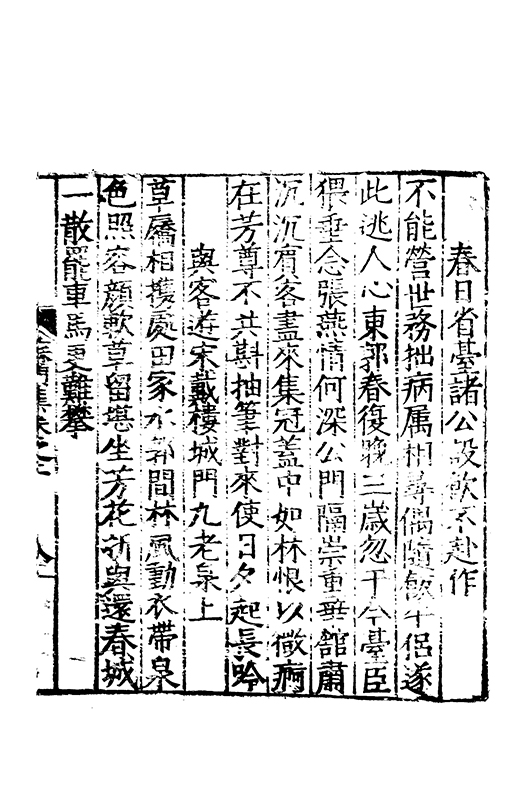 春日省臺諸公設飲不赴作
不能營世務拙病属相尋偶隨飲牛侶遂
此逃人心東郭春復晚三歳忽于今臺臣
猥垂念張燕情何深公門隔崇重華舘肅
沉沉賔客盡來集冠蓋中如林恨以微痾
在芳尊不共斟抽筆對來使日夕起長吟
與客遊宋戴樓城門九老泉上
草屩相擕處田家水郭間林風動衣帶泉
色照容顔軟草留堪坐芳花折與還春城
一散罷車馬更難攀
集卷之